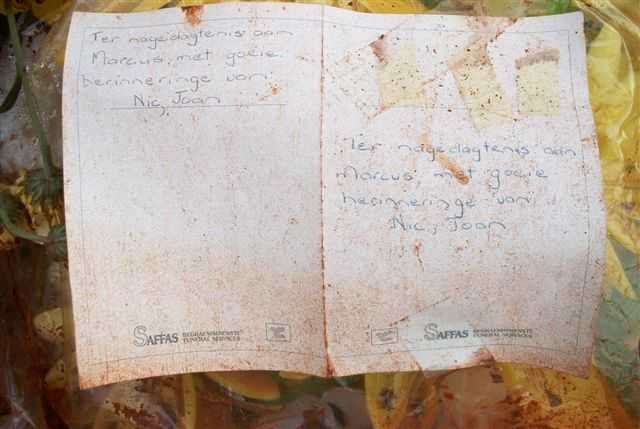 Ter nagedagtenis aan
Marcus, met goeie
herinneringe van:
Nic, Joan
Ter nagedagtenis aan
Marcus, met goeie
herinneringe van:
Nic, Joan
SAFFAS BEGRAFNISDIENSTE
FUNERAL SERVICES
SAFFAS BEGRAFNISDIENSTE
FUNERAL SERVICES